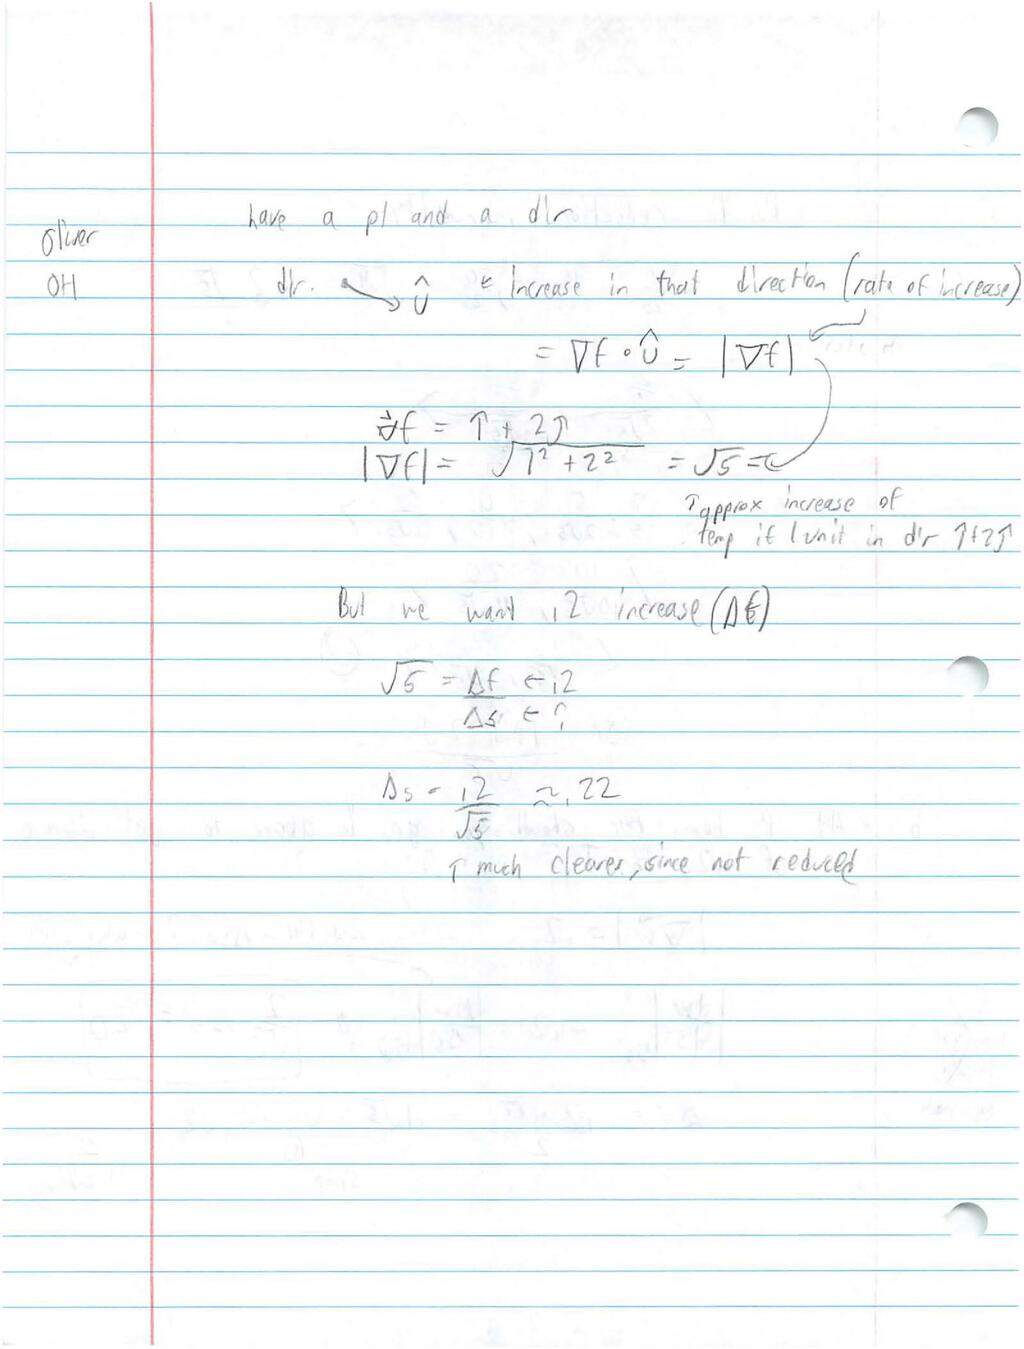 have a pt and a dir
Oliver
OH
dir. → û ← increase in that direction (rate of increase)
= ∇f • û = |∇f|
∇⃗f = î + 2ĵ
|∇f| = √1² + 2² = √5 =
↑ approx increase of
temp if 1 unit in dir î+2ĵ
But we want .2 increase (Δf)
√5 = Δf ← .2
Δs ← ?
Δs = .2 ≈ .22
√5
↑ much clearer, since not reduced